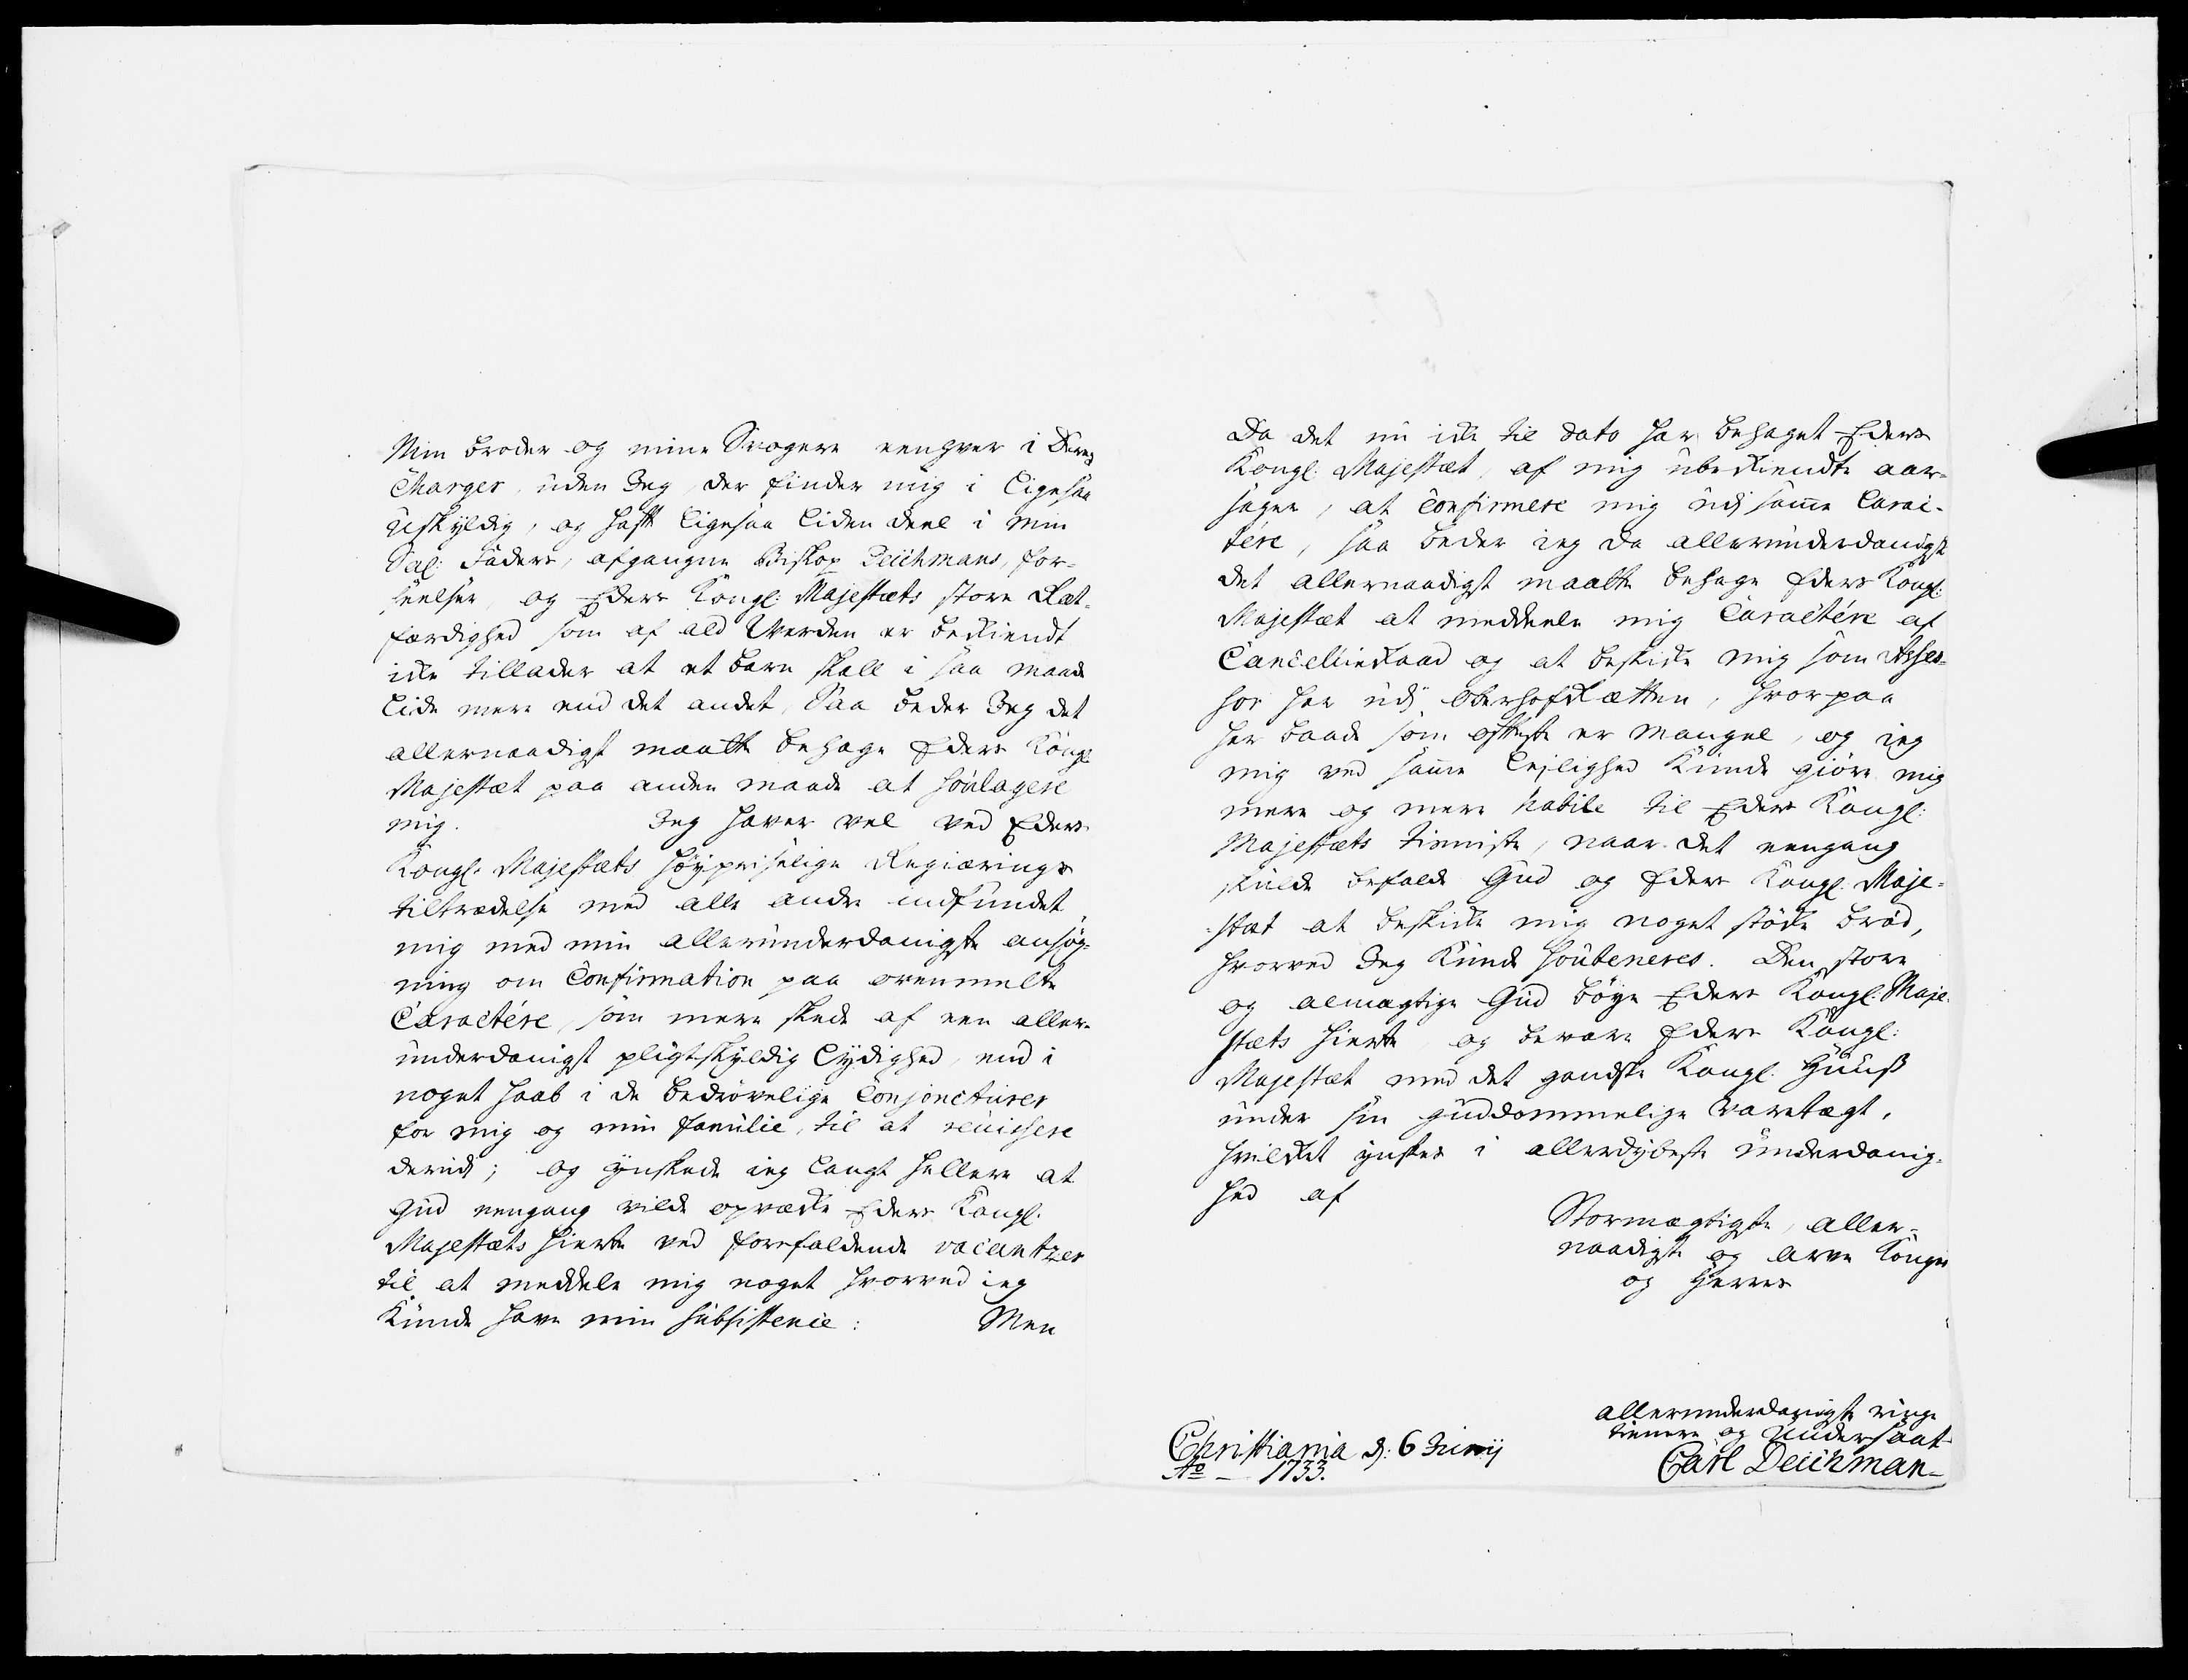 Min broder og mine Svogere eenhver i Deres
Charger, uden Jeg, der finder mig i ligesaa
uskyldig, og haft ligesaa liden deel i min
Sal: Faders, afgangne Biskop Deichmans, for-
seelser, og Eders Kongl: Majestæts store Ræt-
færdighed som af ald Verden er bekiendt
icke tillader at et barn skall i saa maade
lide mere end det andet, Saa beder Jeg det
allernaadigst maatte behage Eders Kongl:
Majestæt paa anden maade at soulagere
mig. Jeg haver vel ved Eders
Kongl: Majestæts høypriselige Regiærings
tiltrædelse med alle andre indfundet
mig med min allerunderdanigste ansøg-
ning om Confirmation paa ovenmelte
Caractére, som mere skede af een aller-
underdanigst pligtskyldig lydighed, end i
noget haab i de bedrøvelige Conjoncturer
for mig og min familie, til at reüissere
derudi; og ynskede ieg langt hellere at
Gud eengang vilde opvæcke Eders Kongl:
Majestæts hierte ved forefaldende vacantzer
til at meddele mig noget hvorved ieg
Kunde have min subsistence: Men
Da det nu icke til dato har behaget Eders
Kongl: Majestæt, af mig ubekiendte aar-
sager, at Confirmere mig udi samme Carac-
tére, saa beder ieg da allerunderdanigst
det allernaadigst maatte behage Eders Kongl:
Majestæt at meddeele mig Caractére af
Cancellieraad og at beskicke mig som Asses-
sor her udi OberhofRætten, hvorpaa
her baade som oftest er mangel, og ieg
mig ved samme leylighed Kunde giøre mig
mere og mere habile til Eders Kongl:
Majestæts tienniste, naar det eengang
skulde befalde Gud og Eders Kongl: Maje-
stæt at beskicke mig noget støcke brød,
hvorved Jeg Kunde soûteneres. Den store
og almægtige Gud bøye Eders Kongl: Maje-
stæts hierte, og bevare Eders Kongl:
Majestæt med det gandske Kongl: Huus
under sin guddommelige varetægt,
hvilcket ynskes i allerdybeste underdanig-
hed af
Stormægtigste, aller-
naadigste og arve Konges
og Herres
allerunderdanigste ringe
tienere og undersaat
Carl Deichman
Christiania d: 6 Junij
Ao 1733.